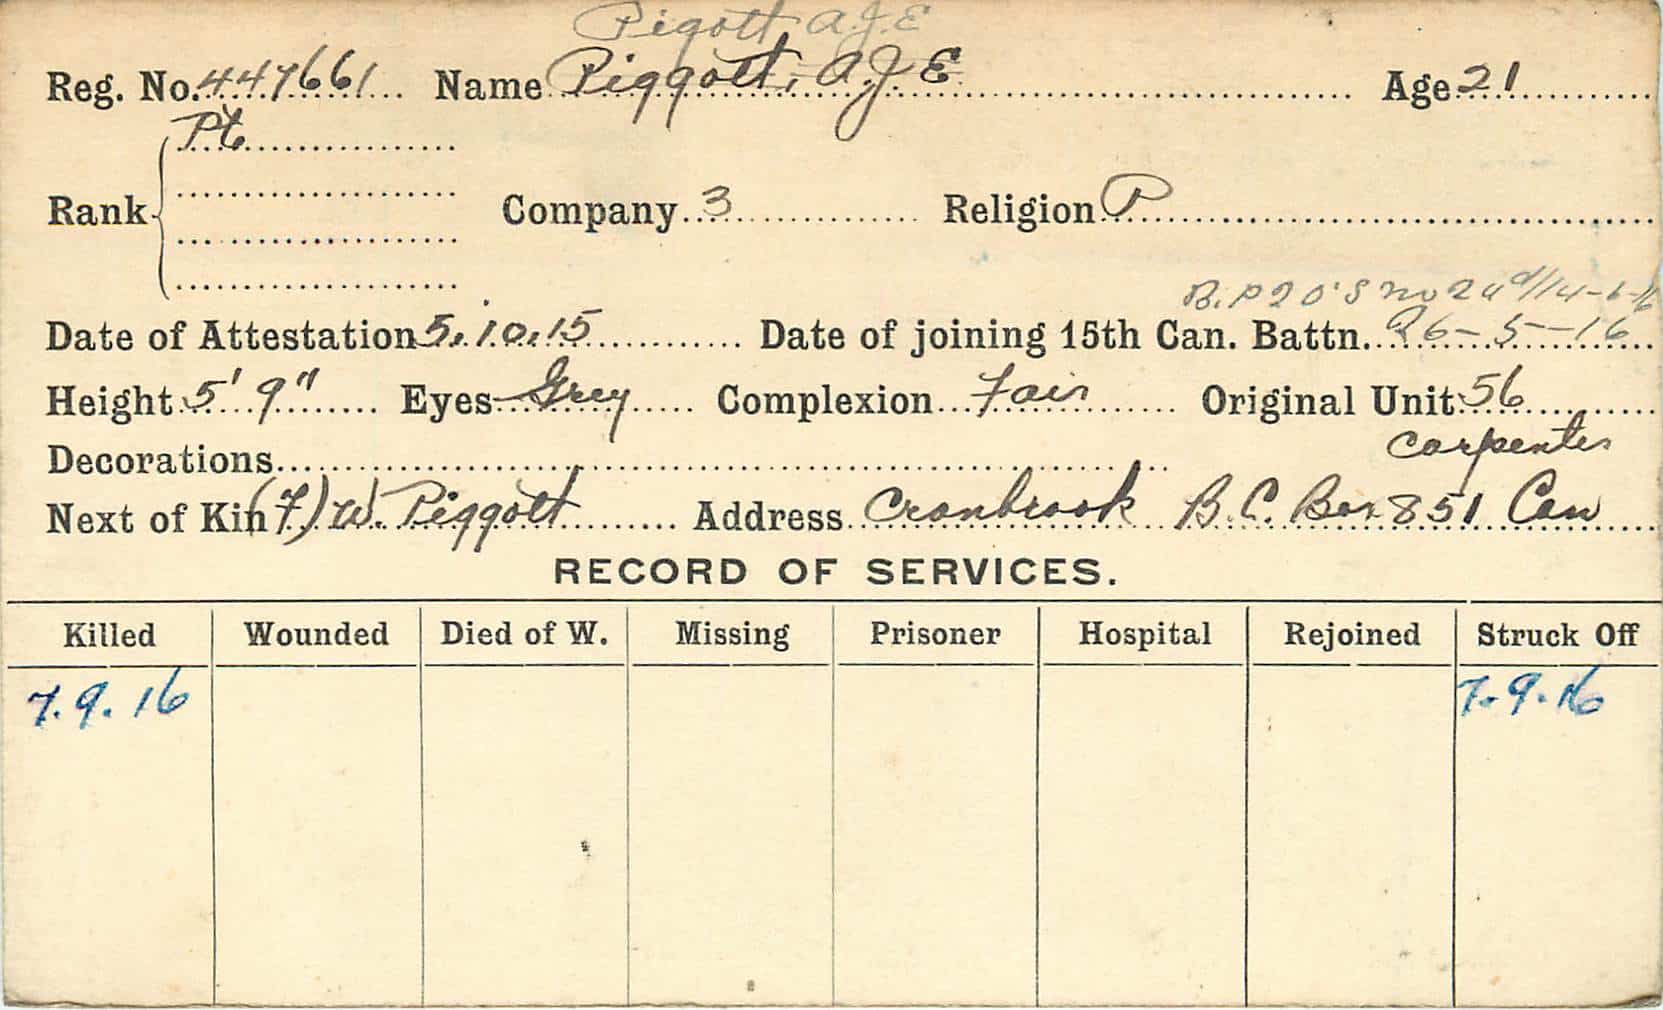 Pigott A.J.E
Reg. No. 447661 Name Piggott, A.J.E Age 21
Pte
Rank Company 3 Religion P
B. P 2 O's No 24 d/14-6-16
Date of Attestation 5.10.15 Date of joining 15th Can. Battn. 26-5-16
Height 5' 9" Eyes Grey Complexion Fair Original Unit 56
Decorations carpenter
Next of Kin (F) W. Piggott Address Cranbrook B.C. Box 851 Can
RECORD OF SERVICES.
Killed Wounded Died of W. Missing Prisoner Hospital Rejoined Struck Off
7.9.16 7.9.16